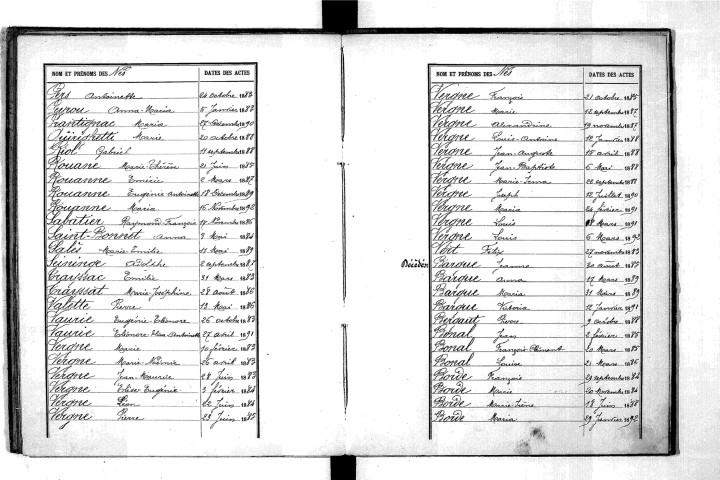 NOM ET PRÉNOMS DES Nés DATES DES ACTES
Antoinette 24 octobre 1882
Anna-Maria 5 Janvier 1887
Prantignac Maria 27 Décembre 1890
Marie 20 octobre 1888
Riol Gabriel 4 septembre 1888
Rouane Marie 21 Juin 1885
Rouanne Émérie 2 Mars 1887
Rouanne Eugénie Antoinette 18 Décembre 1889
Rouanne Maria 16 Novembre 1892
Sabatier Raymond François 17 Novembre 1886
Saint-Bonnet Anna 9 Mai 1884
Salès Marie Emilie 11 Mai 1889
Adolphe 2 septembre 1887
Trayssac Emilie 31 Mars 1883
Trayssat Marie-Joséphine 28 août 1886
Valette Pierre 13 Mai 1886
Vaurie Eugénie-Eléonore 26 octobre 1883
Vaurie Eléonore Antoinette 27 avril 1891
Vergne Marie 10 février 1883
Vergne Marie-Noémie 25 avril 1883
Vergne Jean-Maurice 28 Juin 1883
Vergne Elise Eugénie 3 février 1884
Vergne Léon 22 Juin 1884
Vergne Pierre 23 Juin 1885
NOM ET PRÉNOMS DES Nés DATES DES ACTES
Vergne François 21 octobre 1885
Vergne Marie 12 septembre 1887
Vergne Alexandrine 19 novembre 1887
Vergne Louis-Antoine 12 Janvier 1888
Vergne Jean-Auguste 15 avril 1888
Vergne Jean-Baptiste 5 Mai 1888
Vergne Marie-Irma 22 septembre 1888
Vergne Joseph 12 Juillet 1890
Vergne Maria 24 février 1891
Vergne Louis 18 Mars 1891
Vergne Louis 5 Mars 1892
Vert Félix 27 novembre 1883
Barque Jeanne 30 août 1885
Barque Anna 17 Mars 1889
Barque Maria 31 Mars 1889
Barque Victoria 12 Janvier 1891
Bergaut Pierre 9 octobre 1888
Bonal Jean 2 février 1885
Bonal François Clément 20 Mars 1885
Bonal Louise 21 Mars 1886
Borde François 29 septembre 1884
Borde Marie 20 Novembre 1884
Borde Marie-Irène 18 Juin 1888
Borde Maria 29 Janvier 1892